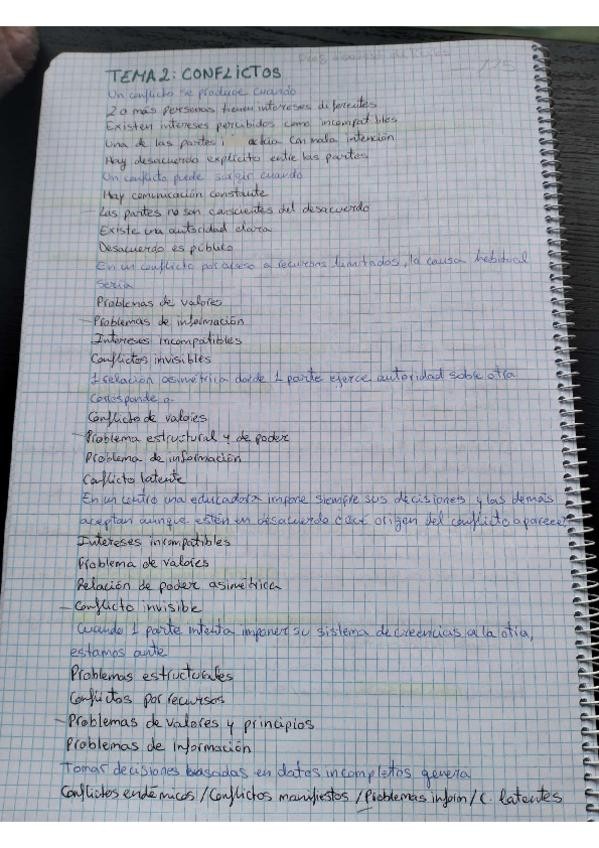 TEMA 2: CONFLICTOS
Un conflicto se produce cuando
2 o más personas tienen intereses diferentes
Existen intereses percibidos como incompatibles
Una de las partes actúa con mala intención
Hay desacuerdo explícito entre las partes
Un conflicto puede surgir cuando
Hay comunicación constante
- Las partes no son conscientes del desacuerdo
Existe una autoridad clara
Desacuerdo es público
En un conflicto por acceso a recursos limitados, la causa habitual
sería
Problemas de valores
- Problemas de información
Intereses incompatibles
Conflictos invisibles
1 relación asimétrica donde 1 parte ejerce autoridad sobre otra
corresponde a
Conflicto de valores
- Problema estructural y de poder
Problema de información
Conflicto latente
En un centro una educadora impone siempre sus decisiones y las demás
aceptan aunque estén en desacuerdo origen del conflicto aparece?
Intereses incompatibles
Problema de valores
Relación de poder asimétrica
- Conflicto invisible
Cuando 1 parte intenta imponer su sistema de creencias a la otra,
estamos ante
Problemas estructurales
Conflictos por recursos
- Problemas de valores y principios
Problemas de Información
Tomar decisiones basadas en datos incompletos genera
Conflictos endémicos / Conflictos manifiestos / Problemas inform / C. latentes